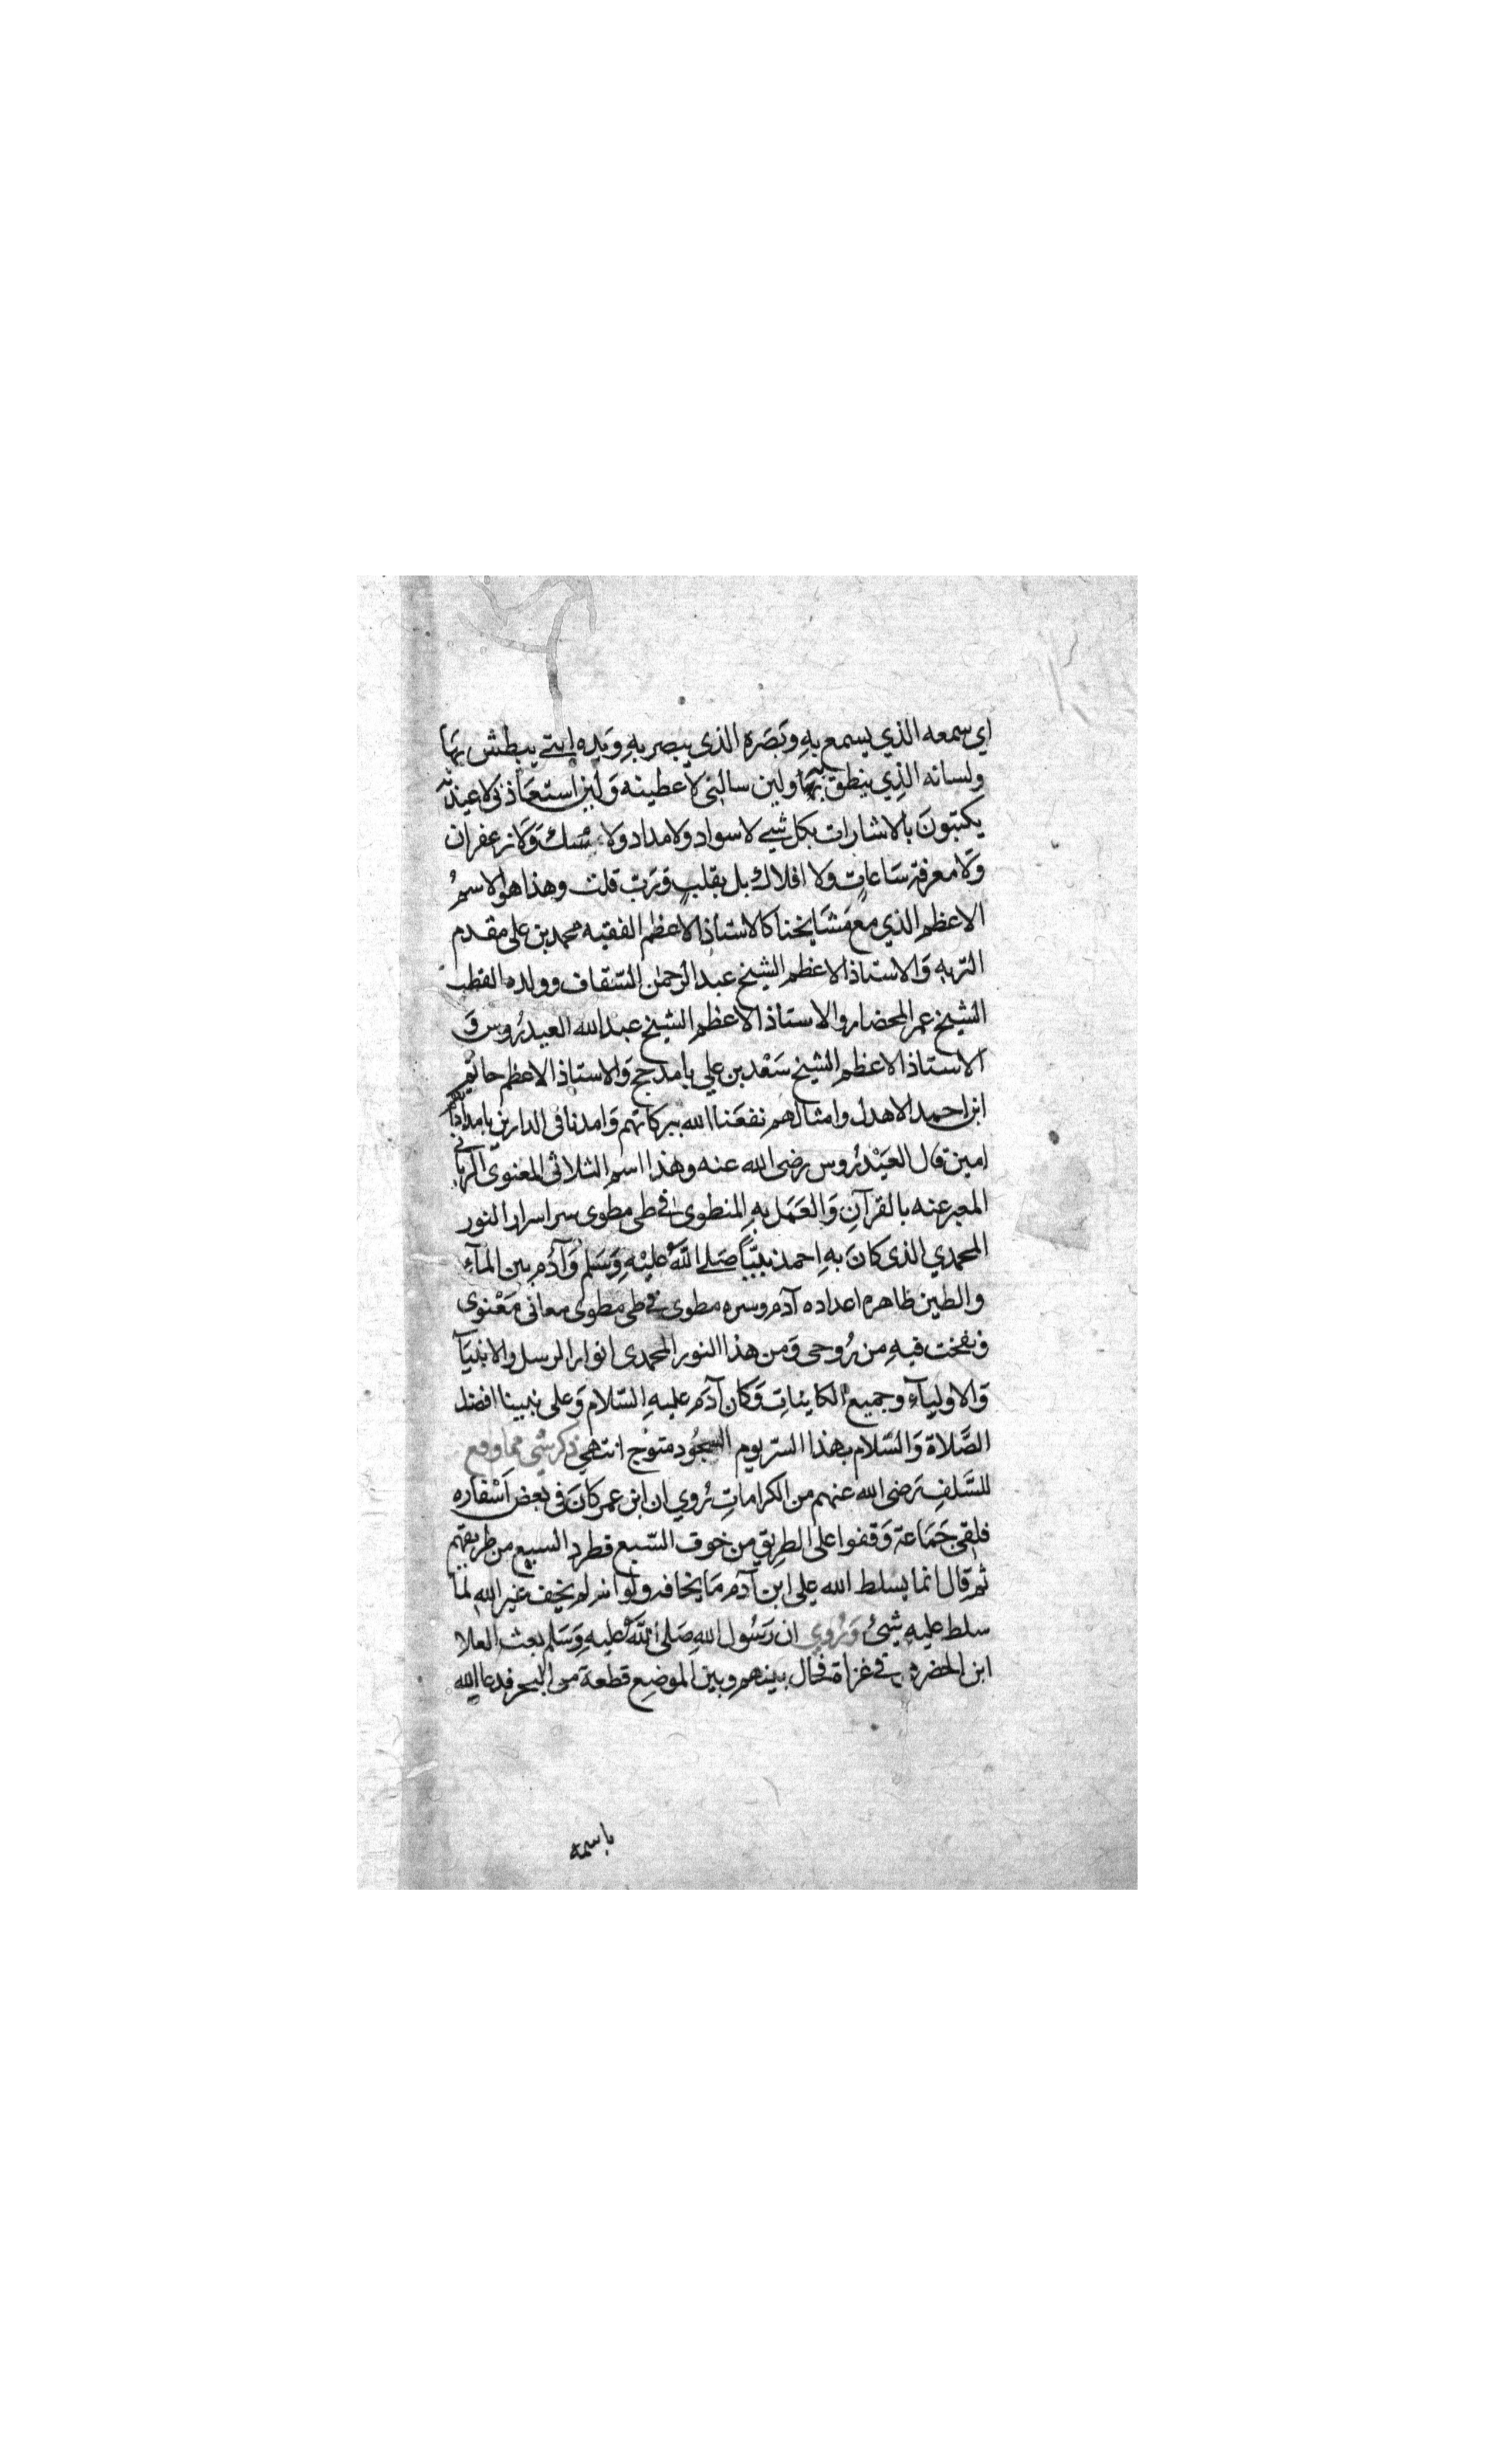 اي سمعه الذي يسمع بهِ وبَصَره الذي يبصر بهِ وَيده التي يبطش بهَا
ولسانه الذِي ينطق بهَا ولين سالني لاعطينه وَلين استعَاذني لاعيذنه
يكتبونَ بالاشارات بكل شيء لا سواد ولا مداد ولا مسك وَلا زعفران
وَلا معرفة سَاعاتٍ ولا افلاك بل بقلبٍ وَربّ قلت وهذا هو الاسمُ
الاعظم الذي معَ مشَايخنا كالاستاذ الاعظم الفقيه محمد بن علي مقدم
التربه وَالاستاذ الاعظم الشيخ عبد الرحمن السّقاف وولده القطب
الشيخ عمر المحضار والاستاذ الاعظم الشيخ عبد الله العيدرُوس وَ
الاستاذ الاعظم الشيخ سَعْد بن علي بامدحج وَالاستاذ الاعظم حاتم
ابن احمد الاهدل وامثالهم نفعَنا الله ببركاتهم وَامدنا في الدارين بامدادهم
امين قال العَيْدرُوس رضي الله عنه وهذا اسم الثلاثي المعنوي الرباني
المعبر عنه بالقرآنِ وَالعَمَل بهِ المنطوي في طي مطوي سر اسرار النور
المحمدي الذي كانَ بهِ احمد نبيّاً صَلى اللَّهُ عليْهِ وَسَلم وَآدَم بين المآءِ
والطين ظاهره اعداده آدم وسره مطوي في طي مطوي معاني مَعْنوي
ونفخت فيهِ من رُوحي وَمن هذا النور المحمدي انوار الرسل والانبيَآ
وَالاوليآءِ وجميع الكاينَاتِ وَكان آدَم عليهِ السّلام وَعلى نبينا افضل
الصَّلاة وَالسّلام بهذا السّر يوم السجُود متوّج انتهي ذكر شي مما وقع
للسَّلفِ رَضي الله عنهم من الكراماتِ رُوي ان ابن عمر كانَ في بَعض اَسْفاره
فلقي جَمَاعة وَقفوا على الطريق من خوف السّبع فطرد السبع من طريقهم
ثم قال انما يسلط الله على ابن آدم مَا يخافه ولو انه لم يخف غير الله لما
سلط عليهِ شيئ وَرُوي ان رَسُول اللهِ صَلى اللَّهُ عليهِ وَسَلم بعث العلا
ابن الحضرمي في غزاة فحال بينهم وبين الموضِع قطعة من البحر فدعا الله
باسمه